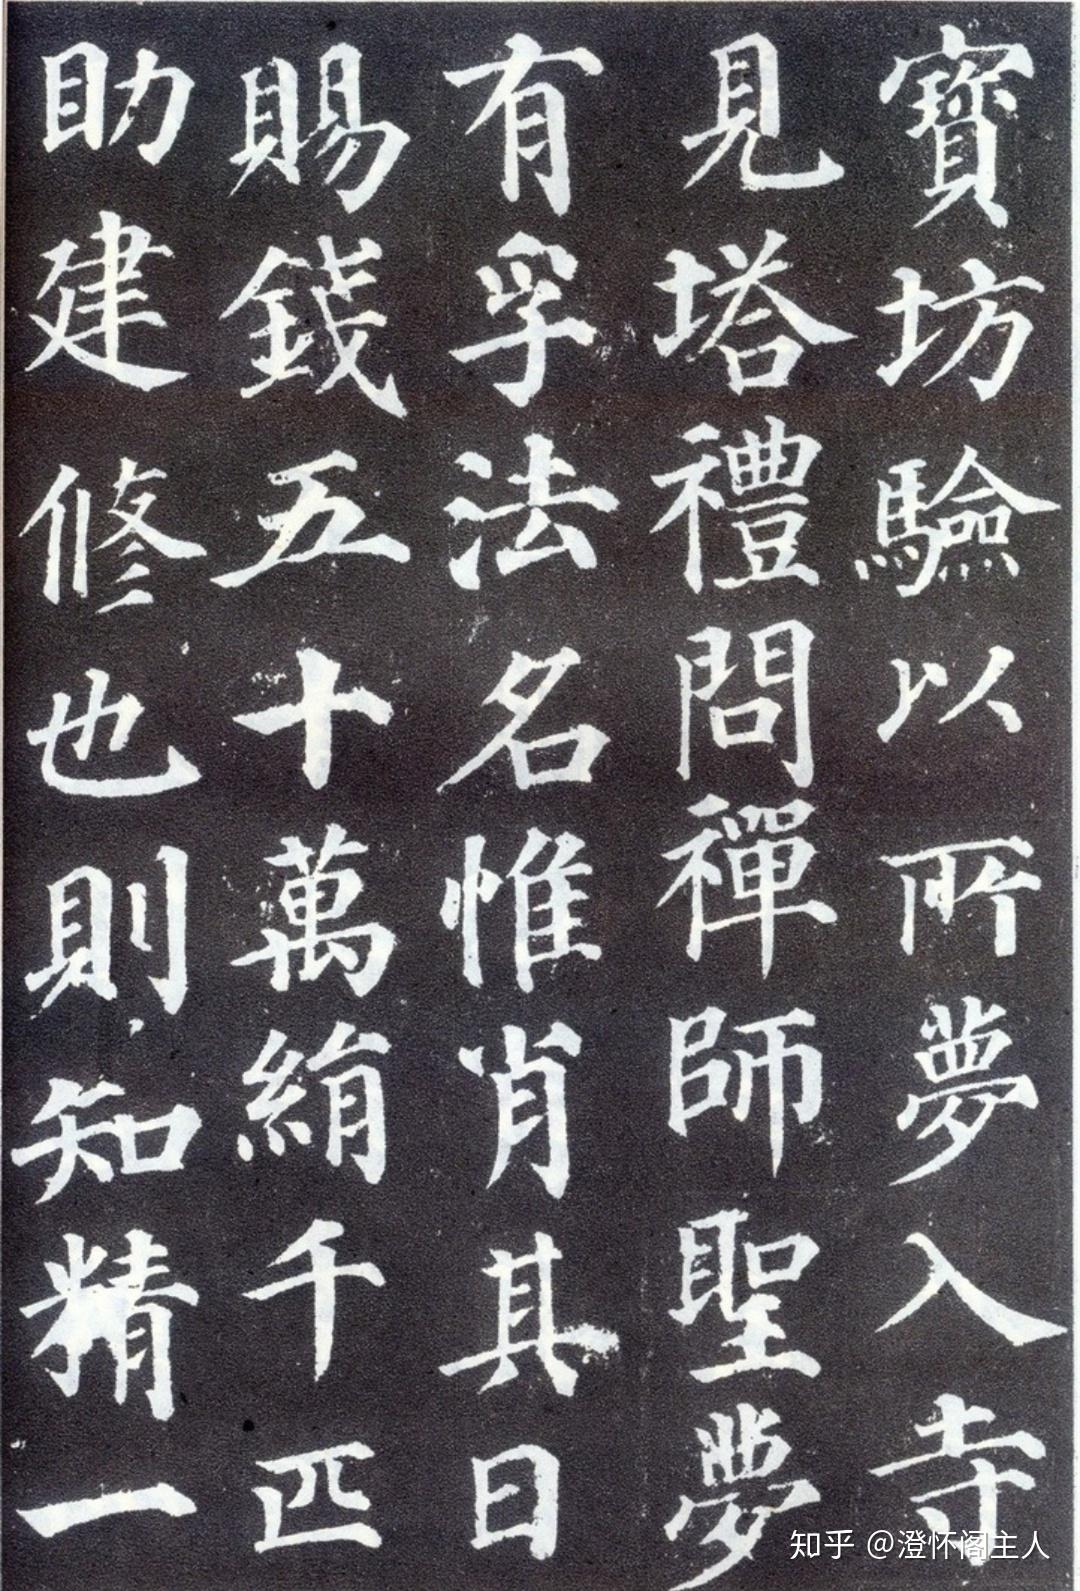 寶坊驗以所夢入寺
見塔禮問禪師聖夢
有孚法名惟肖其日
賜錢五十萬絹千匹
助建修也則知精一
知乎 @澄怀阁主人